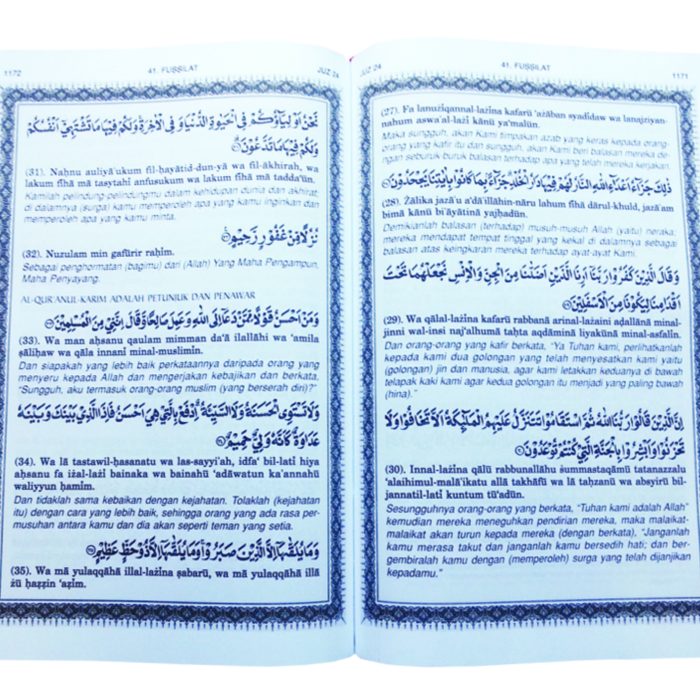 JUZ 24
41. FUṢṢILAT
1171
(27). Fa lanużīqannal-lażīna kafarū 'ażāban syadīdaw wa lanajziyan-
nahum aswa'al-lażī kānū ya'malūn.
Maka sungguh, akan Kami timpakan azab yang keras kepada orang-
orang yang kafir itu dan sungguh, akan Kami beri balasan mereka de-
ngan seburuk buruk balasan terhadap apa yang telah mereka kerjakan.
ذٰلِكَ جَزَاۤءُ اَعْدَاۤءِ اللّٰهِ النَّارُ لَهُمْ فِيْهَا دَارُ الْخُلْدِ جَزَاۤءً ۢبِمَا كَانُوْا بِاٰيٰتِنَا يَجْحَدُوْنَ ۝٢٨
(28). Żālika jazā'u a'dā'illāhin-nāru lahum fīhā dārul-khuld, jazā'am
bimā kānū bi'āyātinā yajḥadūn.
Demikianlah balasan (terhadap) musuh-musuh Allah (yaitu) neraka;
mereka mendapat tempat tinggal yang kekal di dalamnya sebagai
balasan atas keingkaran mereka terhadap ayat-ayat Kami.
وَقَالَ الَّذِيْنَ كَفَرُوْا رَبَّنَآ اَرِنَا الَّذَيْنِ اَضَلّٰنَا مِنَ الْجِنِّ وَالْاِنْسِ نَجْعَلْهُمَا تَحْتَ
اَقْدَامِنَا لِيَكُوْنَا مِنَ الْاَسْفَلِيْنَ ۝٢٩
(29). Wa qālal-lażīna kafarū rabbanā arinal-lażaini aḍallānā minal-
jinni wal-insi naj'alhumā taḥta aqdāminā liyakūnā minal-asfalīn.
Dan orang-orang yang kafir berkata, “Ya Tuhan kami, perlihatkanlah
kepada kami dua golongan yang telah menyesatkan kami yaitu
(golongan) jin dan manusia, agar kami letakkan keduanya di bawah
telapak kaki kami agar kedua golongan itu menjadi yang paling bawah
(hina).”
اِنَّ الَّذِيْنَ قَالُوْا رَبُّنَا اللّٰهُ ثُمَّ اسْتَقَامُوْا تَتَنَزَّلُ عَلَيْهِمُ الْمَلٰۤىِٕكَةُ اَلَّا تَخَافُوْا وَلَا
تَحْزَنُوْا وَاَبْشِرُوْا بِالْجَنَّةِ الَّتِيْ كُنْتُمْ تُوْعَدُوْنَ ۝٣٠
(30). Innal-lażīna qālū rabbunallāhu ṡummastaqāmū tatanazzalu
'alaihimul-malā'ikatu allā takhāfū wa lā taḥzanū wa absyirū bil-
jannatil-latī kuntum tū'adūn.
Sesungguhnya orang-orang yang berkata, “Tuhan kami adalah Allah”
kemudian mereka meneguhkan pendirian mereka, maka malaikat-
malaikat akan turun kepada mereka (dengan berkata), “Janganlah
kamu merasa takut dan janganlah kamu bersedih hati; dan ber-
gembiralah kamu dengan (memperoleh) surga yang telah dijanjikan
kepadamu.”
1172
41. FUṢṢILAT
JUZ 24
نَحْنُ اَوْلِيَاۤؤُكُمْ فِى الْحَيٰوةِ الدُّنْيَا وَفِى الْاٰخِرَةِ وَلَكُمْ فِيْهَا مَا تَشْتَهِيْٓ اَنْفُسُكُمْ
وَلَكُمْ فِيْهَا مَا تَدَّعُوْنَ ۝٣١
(31). Naḥnu auliyā'ukum fil-ḥayātid-dun-yā wa fil-ākhirah, wa
lakum fīhā mā tasytahī anfusukum wa lakum fīhā mā tadda'ūn.
Kamilah pelindung-pelindungmu dalam kehidupan dunia dan akhirat;
di dalamnya (surga) kamu memperoleh apa yang kamu inginkan dan
memperoleh apa yang kamu minta.
نُزُلًا مِّنْ غَفُوْرٍ رَّحِيْمٍ ۝٣٢
(32). Nuzulam min gafūrir raḥīm.
Sebagai penghormatan (bagimu) dari (Allah) Yang Maha Pengampun,
Maha Penyayang.
AL-QUR'ANUL-KARIM ADALAH PETUNJUK DAN PENAWAR
وَمَنْ اَحْسَنُ قَوْلًا مِّمَّنْ دَعَآ اِلَى اللّٰهِ وَعَمِلَ صَالِحًا وَّقَالَ اِنَّنِيْ مِنَ الْمُسْلِمِيْنَ ۝٣٣
(33). Wa man aḥsanu qaulam mimman da'ā ilallāhi wa 'amila
ṣāliḥaw wa qāla innanī minal-muslimīn.
Dan siapakah yang lebih baik perkataannya daripada orang yang
menyeru kepada Allah dan mengerjakan kebajikan dan berkata,
“Sungguh, aku termasuk orang-orang muslim (yang berserah diri)?”
وَلَا تَسْتَوِى الْحَسَنَةُ وَلَا السَّيِّئَةُ اِدْفَعْ بِالَّتِيْ هِيَ اَحْسَنُ فَاِذَا الَّذِيْ بَيْنَكَ وَبَيْنَهٗ
عَدَاوَةٌ كَاَنَّهٗ وَلِيٌّ حَمِيْمٌ ۝٣٤
(34). Wa lā tastawil-ḥasanatu wa las-sayyi'ah, idfa' bil-latī hiya
aḥsanu fa iżal-lażī bainaka wa bainahū 'adāwatun ka'annahū
waliyyun ḥamīm.
Dan tidaklah sama kebaikan dengan kejahatan. Tolaklah (kejahatan
itu) dengan cara yang lebih baik, sehingga orang yang ada rasa per-
musuhan antara kamu dan dia akan seperti teman yang setia.
وَمَا يُلَقّٰىهَآ اِلَّا الَّذِيْنَ صَبَرُوْا وَمَا يُلَقّٰىهَآ اِلَّا ذُوْ حَظٍّ عَظِيْمٍ ۝٣٥
(35). Wa mā yulaqqāhā illal-lażīna ṣabarū, wa mā yulaqqāhā illā
żū ḥaẓẓin 'aẓīm.